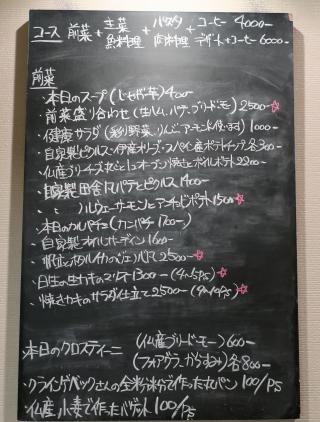 コース 前菜 + 主菜 + パスタ + コーヒー 4000-
魚料理 肉料理 デザート+コーヒー 6000-
前菜
・本日のスープ(じゃがいも)400-
・前菜盛り合わせ(生ハム、パテ、ブリードモー)2500- ☆
・健康サラダ(彩り野菜、りんご、アーモンド使います)1000-
・自家製ピクルス・伊産オリーブ・スペイン産ポテトチップス 各300-
・仏産ブリーチーズ オーブン焼き 2200-
・自家製田舎風パテとピクルス 1400-
・〃 ノルウェーサーモンとアンチョビポテト 1500- ☆
・本日のカルパッチョ(カンパチ 1700-)
・自家製オイルサーディン 1600-
2500- ☆
・生カキの 1300-(4〜5Ps) ☆
・焼きカキのサラダ仕立て 2500- ☆
・本日のクロスティーニ(仏産ブリードモー)600-
(フォアグラ、からすみ)各800-
・クラインゲベックさんの全粒粉で作った丸パン 100/Ps
・仏産小麦で作ったバゲット 100/Ps